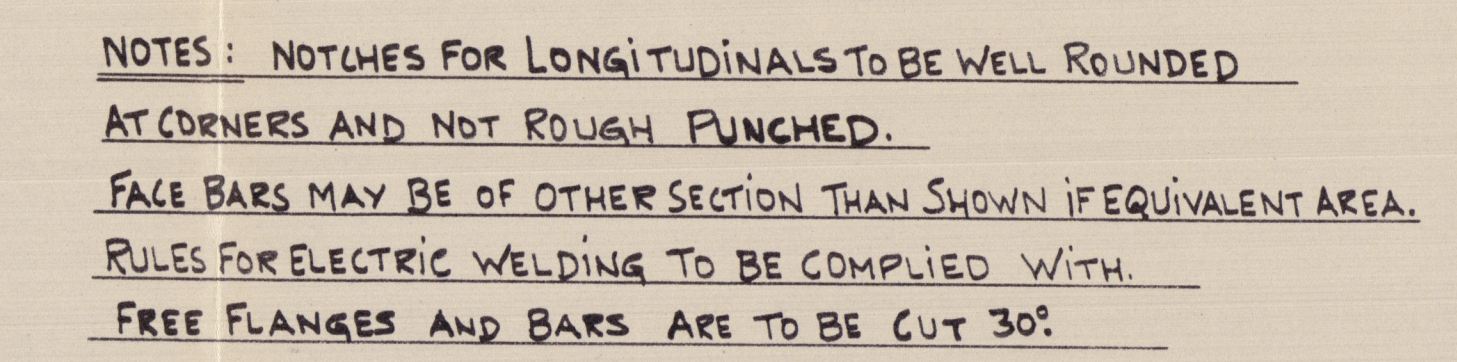 NOTES: NOTCHES FOR LONGiTUDiNALS TO BE WELL ROUNDED
AT CORNERS AND NOT ROUGH PUNCHED.
FACE BARS MAY BE OF OTHER SECTiON THAN SHOWN iF EQUiVALENT AREA.
RULES FOR ELECTRiC WELDiNG TO BE COMPLiED WiTH.
FREE FLANGES AND BARS ARE TO BE CUT 30°.